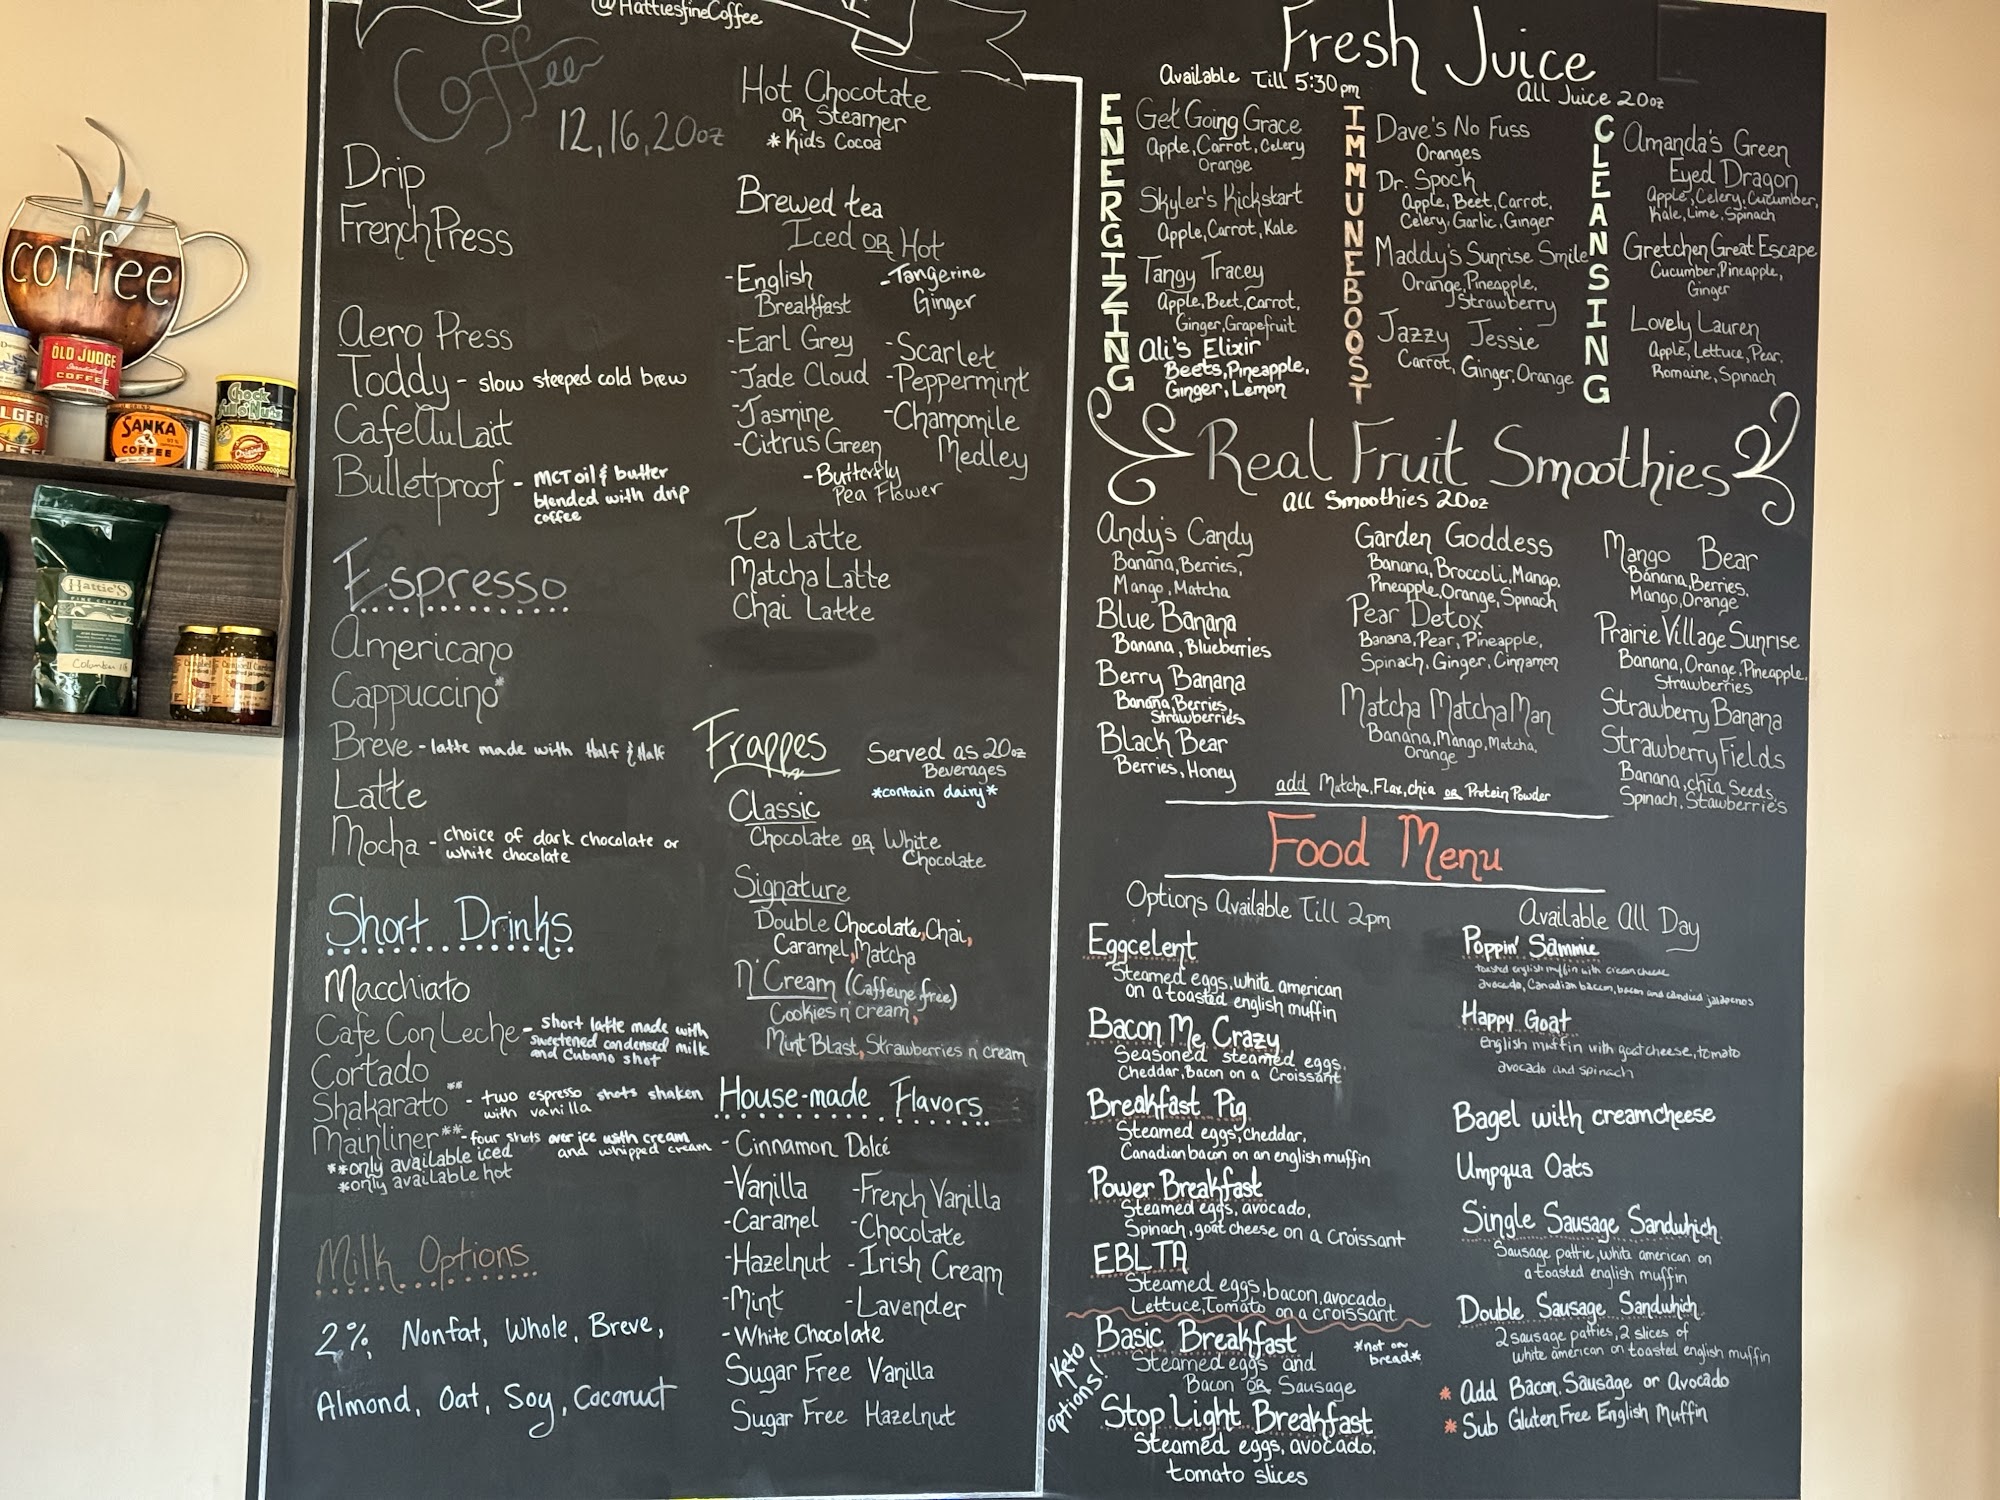 @HattiesfineCoffee
Coffee
12, 16, 20oz
Drip
French Press
Aero Press
Toddy - slow steeped cold brew
Cafe Au Lait
Bulletproof - MCT oil & butter
blended with drip
coffee
Espresso
Americano
Cappuccino*
Breve - latte made with Half & Half
Latte
Mocha - choice of dark chocolate or
white chocolate
Short Drinks
Macchiato
Cafe Con Leche - short latte made with
sweetened condensed milk
and Cubano shot
Cortado
Shakarato** - two espresso shots shaken
with vanilla
Mainliner** - four shots over ice with cream
and whipped cream
**only available iced
*only available hot
Milk Options
2%, Nonfat, Whole, Breve,
Almond, Oat, Soy, Coconut
Hot Chocolate
OR Steamer
*Kids Cocoa
Brewed tea
Iced OR Hot
-English
Breakfast
-Earl Grey
-Jade Cloud
-Jasmine
-Citrus Green
-Tangerine
Ginger
-Scarlet
-Peppermint
-Chamomile
Medley
-Butterfly
Pea Flower
Tea Latte
Matcha Latte
Chai Latte
Frappes
Served as 20oz
Beverages
*contain dairy*
Classic
Chocolate OR White
Chocolate
Signature
Double Chocolate, Chai,
Caramel, Matcha
N' Cream (Caffeine free)
Cookies n' cream,
Mint Blast, Strawberries n cream
House-made Flavors
-Cinnamon Dolcé
-Vanilla
-French Vanilla
-Caramel
-Chocolate
-Hazelnut
-Irish Cream
-Mint
-Lavender
-White Chocolate
Sugar Free Vanilla
Sugar Free Hazelnut
Fresh Juice
Available Till 5:30pm
All Juice 20oz
ENERGIZING
Get Going Grace
Apple, Carrot, Celery
Orange
Skyler's Kickstart
Apple, Carrot, Kale
Tangy Tracey
Apple, Beet, Carrot,
Ginger, Grapefruit
Ali's Elixir
Beets, Pineapple,
Ginger, Lemon
IMMUNEBOOST
Dave's No Fuss
Oranges
Dr. Spock
Apple, Beet, Carrot,
Celery, Garlic, Ginger
Maddy's Sunrise Smile
Orange, Pineapple,
Strawberry
Jazzy Jessie
Carrot, Ginger, Orange
CLEANSING
Amanda's Green
Eyed Dragon
Apple, Celery, Cucumber,
Kale, Lime, Spinach
Gretchen Great Escape
Cucumber, Pineapple,
Ginger
Lovely Lauren
Apple, Lettuce, Pear,
Romaine, Spinach
Real Fruit Smoothies
All Smoothies 20oz
Andy's Candy
Banana, Berries,
Mango, Matcha
Blue Banana
Banana, Blueberries
Berry Banana
Banana, Berries,
Strawberries
Black Bear
Berries, Honey
Garden Goddess
Banana, Broccoli, Mango,
Pineapple, Orange, Spinach
Pear Detox
Banana, Pear, Pineapple,
Spinach, Ginger, Cinnamon
Matcha Matcha Man
Banana, Mango, Matcha,
Orange
Mango Bear
Banana, Berries,
Mango, Orange
Prairie Village Sunrise
Banana, Orange, Pineapple,
Strawberries
Strawberry Banana
Strawberry Fields
Banana, Chia Seeds,
Spinach, Stawberries
add Matcha, Flax, chia or Protein Powder
Food Menu
Options Available Till 2pm
Eggcelent
Steamed eggs, white american
on a toasted english muffin
Bacon Me Crazy
Seasoned steamed eggs,
Cheddar, Bacon on a Croissant
Breakfast Pig
Steamed eggs, cheddar,
Canadian bacon on an english muffin
Power Breakfast
Steamed eggs, avocado,
Spinach, goat cheese on a croissant
EBLTA
Steamed eggs, bacon, avocado
Lettuce, Tomato on a croissant
Keto
options!
Basic Breakfast
*not on
bread*
Steamed eggs and
Bacon OR Sausage
Stop Light Breakfast
Steamed eggs, avocado,
tomato slices
Available All Day
Poppin' Sammie
toasted english muffin with cream cheese
avocado, Canadian bacon, bacon and candied jalapenos
Happy Goat
english muffin with goat cheese, tomato
avocado and spinach
Bagel with creamcheese
Umpqua Oats
Single Sausage Sandwhich
Sausage pattie, white american on
a toasted english muffin
Double Sausage Sandwhich
2 sausage patties, 2 slices of
white american on toasted english muffin
* Add Bacon, Sausage or Avocado
* Sub Gluten Free English Muffin
coffee
OLD JUDGE
COFFEE
SANKA
COFFEE
Chock
full o' Nuts
Hattie's
FINE COFFEE